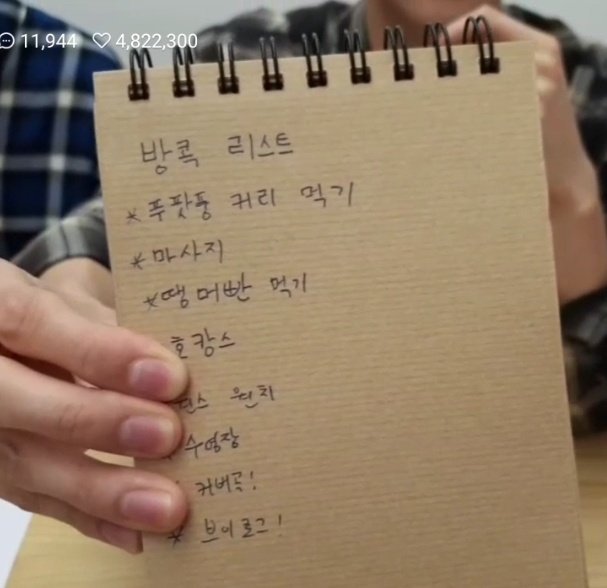 11,944 4,822,300
방콕 리스트
*푸팟퐁 커리 먹기
*마사지
*땡머빤 먹기
호캉스
수영장
커버곡!
* 브이로그!